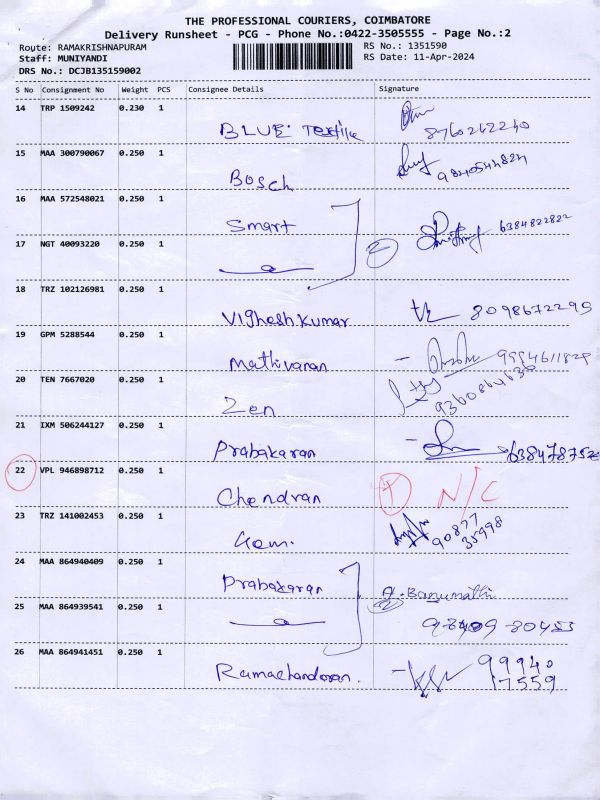 THE PROFESSIONAL COURIERS, COIMBATORE
Delivery Runsheet - PCG - Phone No.:0422-3505555 - Page No.:2
Route: RAMAKRISHNAPURAM
RS No.: 1351590
Staff: MUNIYANDI
RS Date: 11-Apr-2024
DRS No.: DCJB135159002
S No Consignment No Weight PCS Consignee Details Signature
14 TRP 1509242 0.230 1
BLUE Textile 8760242240
15 MAA 300790067 0.250 1
Bosch 9840544824
16 MAA 572548021 0.250 1
Smart 6384822822
17 NGT 40093220 0.250 1
2
18 TRZ 102126981 0.250 1
Vighesh Kumar 8098672295
19 GPM 5288544 0.250 1
Mathivanan 9994611829
20 TEN 7667020 0.250 1
Zen
21 IXM 506244127 0.250 1
Prabakaran
22 VPL 946898712 0.250 1
Chendran N/C
23 TRZ 141002453 0.250 1
90877
35998
24 MAA 864940409 0.250 1
Prabakaran A. Banumathi
25 MAA 864939541 0.250 1
26 MAA 864941451 0.250 1
Ramachandran. 99940
17559